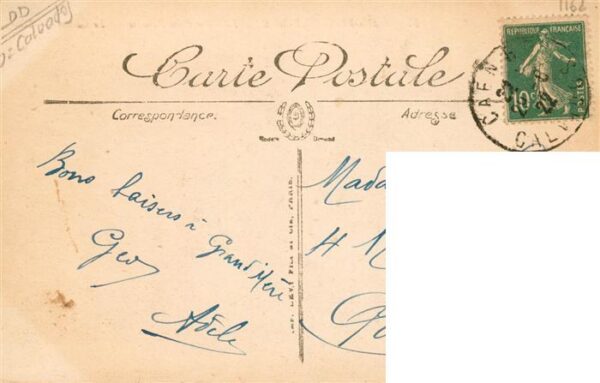 DD
Calvados
1162
Carte Postale
Correspondance.
Adresse
REPUBLIQUE FRANÇAISE
10c
POSTES
CAEN
CALV
22
Bons baisers à Grand Mère
Geo
Adèle
IMP. LEVY FILS ET CIE, PARIS.
Mada
4